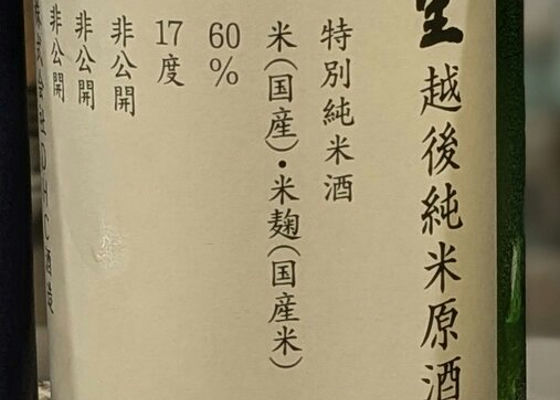 越後純米原酒
特別純米酒
米(国産)・米麹(国産米)
60%
17度
非公開
非公開
非公開
株式会社DHC酒造